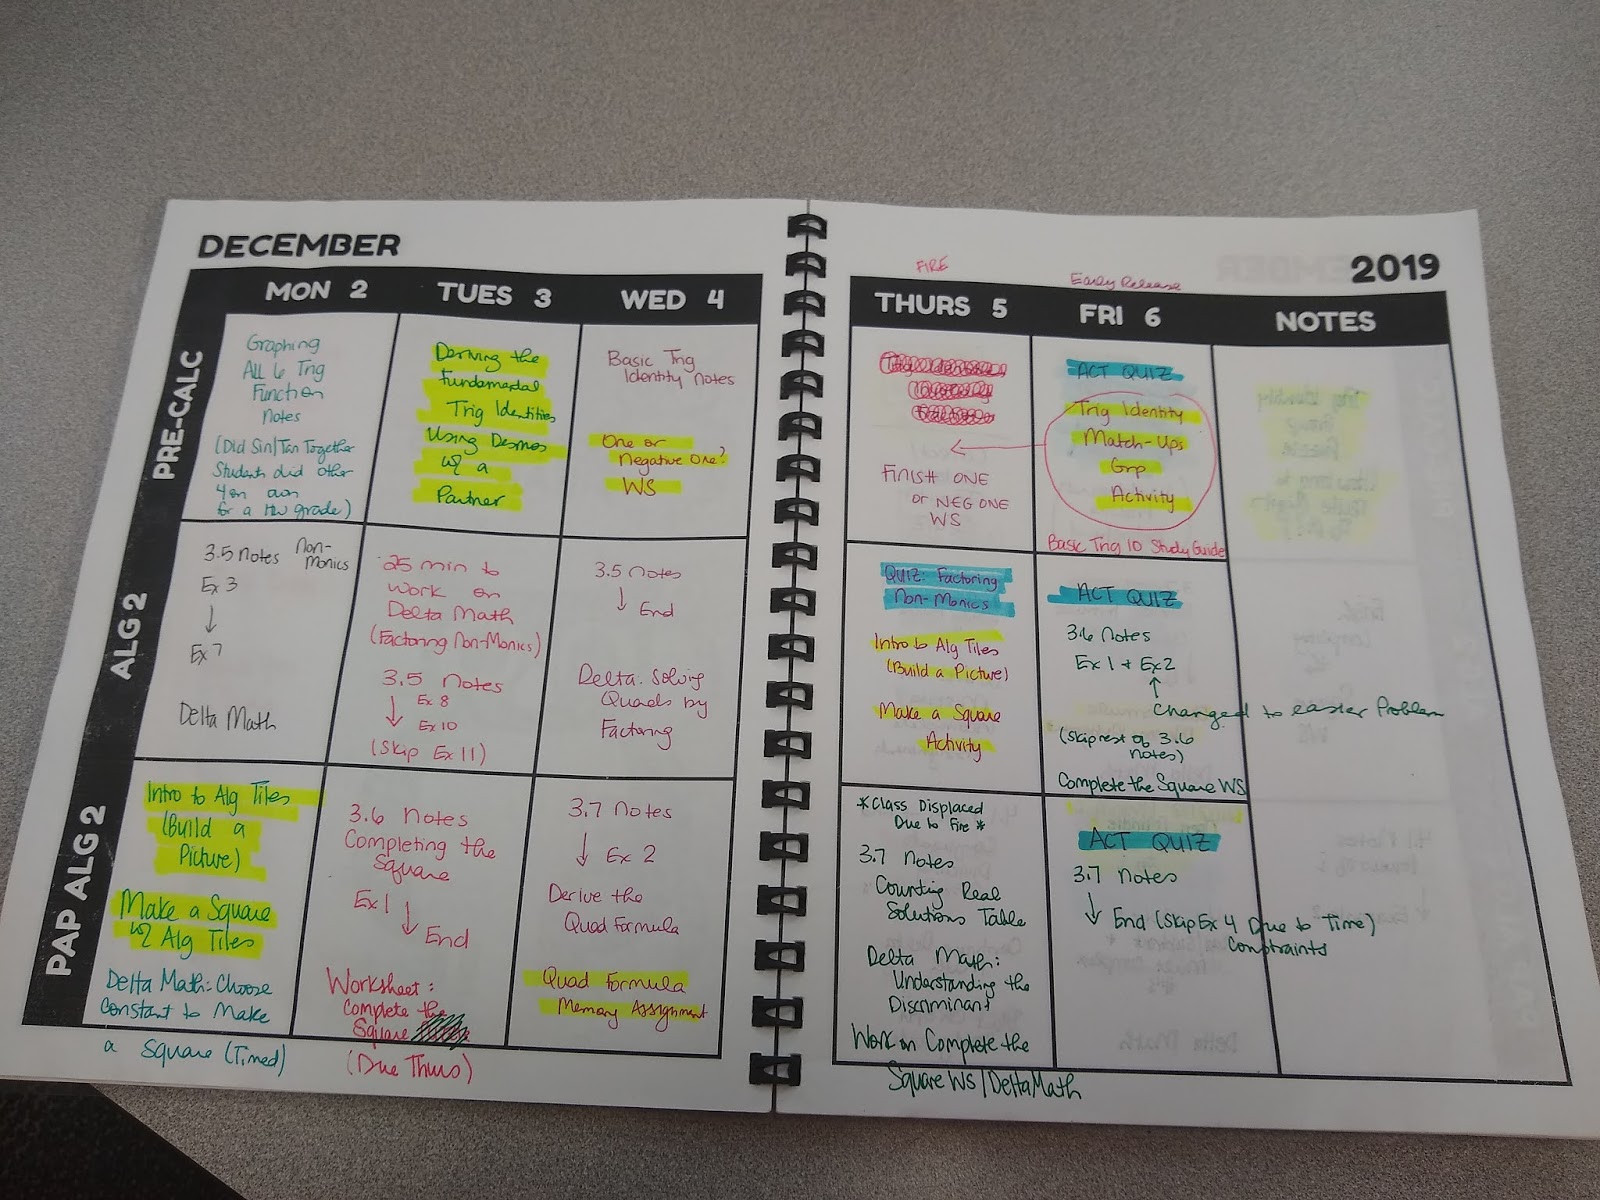 DECEMBER
2019
FIRE
Early Release
MON 2
TUES 3
WED 4
THURS 5
FRI 6
NOTES
PRE-CALC
Graphing
All 6 Trig
Function
Notes
(Did Sin/Tan Together
Students did other
4 on own
for a HW grade)
Deriving the
Fundamental
Trig Identities
Using Desmos
w/ a
Partner
Basic Trig
Identity Notes
One or
Negative One?
WS
FINISH ONE
OR NEG ONE
WS
ACT QUIZ
Trig Identity
Match-Ups
Grp
Activity
Basic Trig ID Study Guide
ALG 2
3.5 Notes Non-
Monics
Ex 3
↓
Ex 7
Delta Math
25 min to
work on
Delta Math
(Factoring Non-Monics)
3.5 Notes
Ex 8
↓
Ex 10
(Skip Ex 11)
3.5 Notes
↓ End
Delta: Solving
Quads by
Factoring
QUIZ: Factoring
Non-Monics
Intro to Alg Tiles
(Build a Picture)
Make a Square
Activity
ACT QUIZ
3.6 Notes
Ex 1 + Ex 2
↑
Changed to easier Problem
(Skip rest of 3.6
Notes)
Complete the Square WS
PAP ALG 2
Intro to Alg Tiles
(Build a
Picture)
Make a Square
w/ Alg Tiles
Delta Math: Choose
Constant to Make
a Square (Timed)
3.6 Notes
Completing the
Square
Ex 1
↓ End
Worksheet:
Complete the
Square
(Due Thurs)
3.7 Notes
↓ Ex 2
Derive the
Quad Formula
Quad Formula
Memory Assignment
*Class Displaced
Due to Fire*
3.7 Notes
Counting Real
Solutions Table
Delta Math:
Understanding the
Discriminant
Work on Complete the
Square WS/DeltaMath
ACT QUIZ
3.7 Notes
↓ End (Skip Ex 4 Due to Time)
Constraints